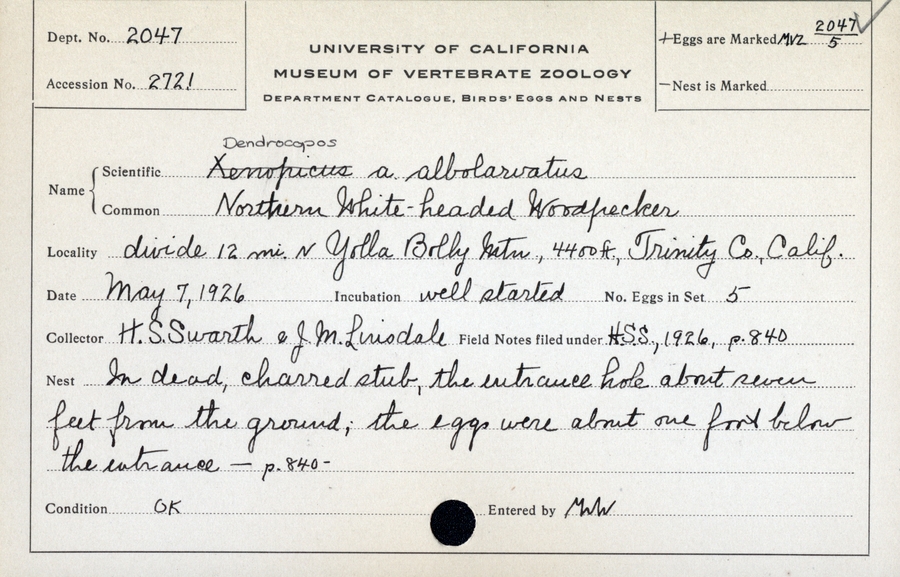 Dept. No. 2047
Accession No. 2721
UNIVERSITY OF CALIFORNIA
MUSEUM OF VERTEBRATE ZOOLOGY
DEPARTMENT CATALOGUE, BIRDS' EGGS AND NESTS
+Eggs are Marked MVZ 2047/5
—Nest is Marked
Dendrocopos
Name { Scientific Xenopicus a. albolarvatus
Common Northern White-headed Woodpecker
Locality divide 12 mi. N Yolla Bolly Mtn., 4400 ft., Trinity Co., Calif.
Date May 7, 1926 Incubation well started No. Eggs in Set 5
Collector H.S. Swarth & J.M. Linsdale Field Notes filed under H.S.S., 1926, p. 840
Nest In dead, charred stub, the entrance hole about seven
feet from the ground; the eggs were about one foot below
the entrance — p. 840-
Condition OK Entered by